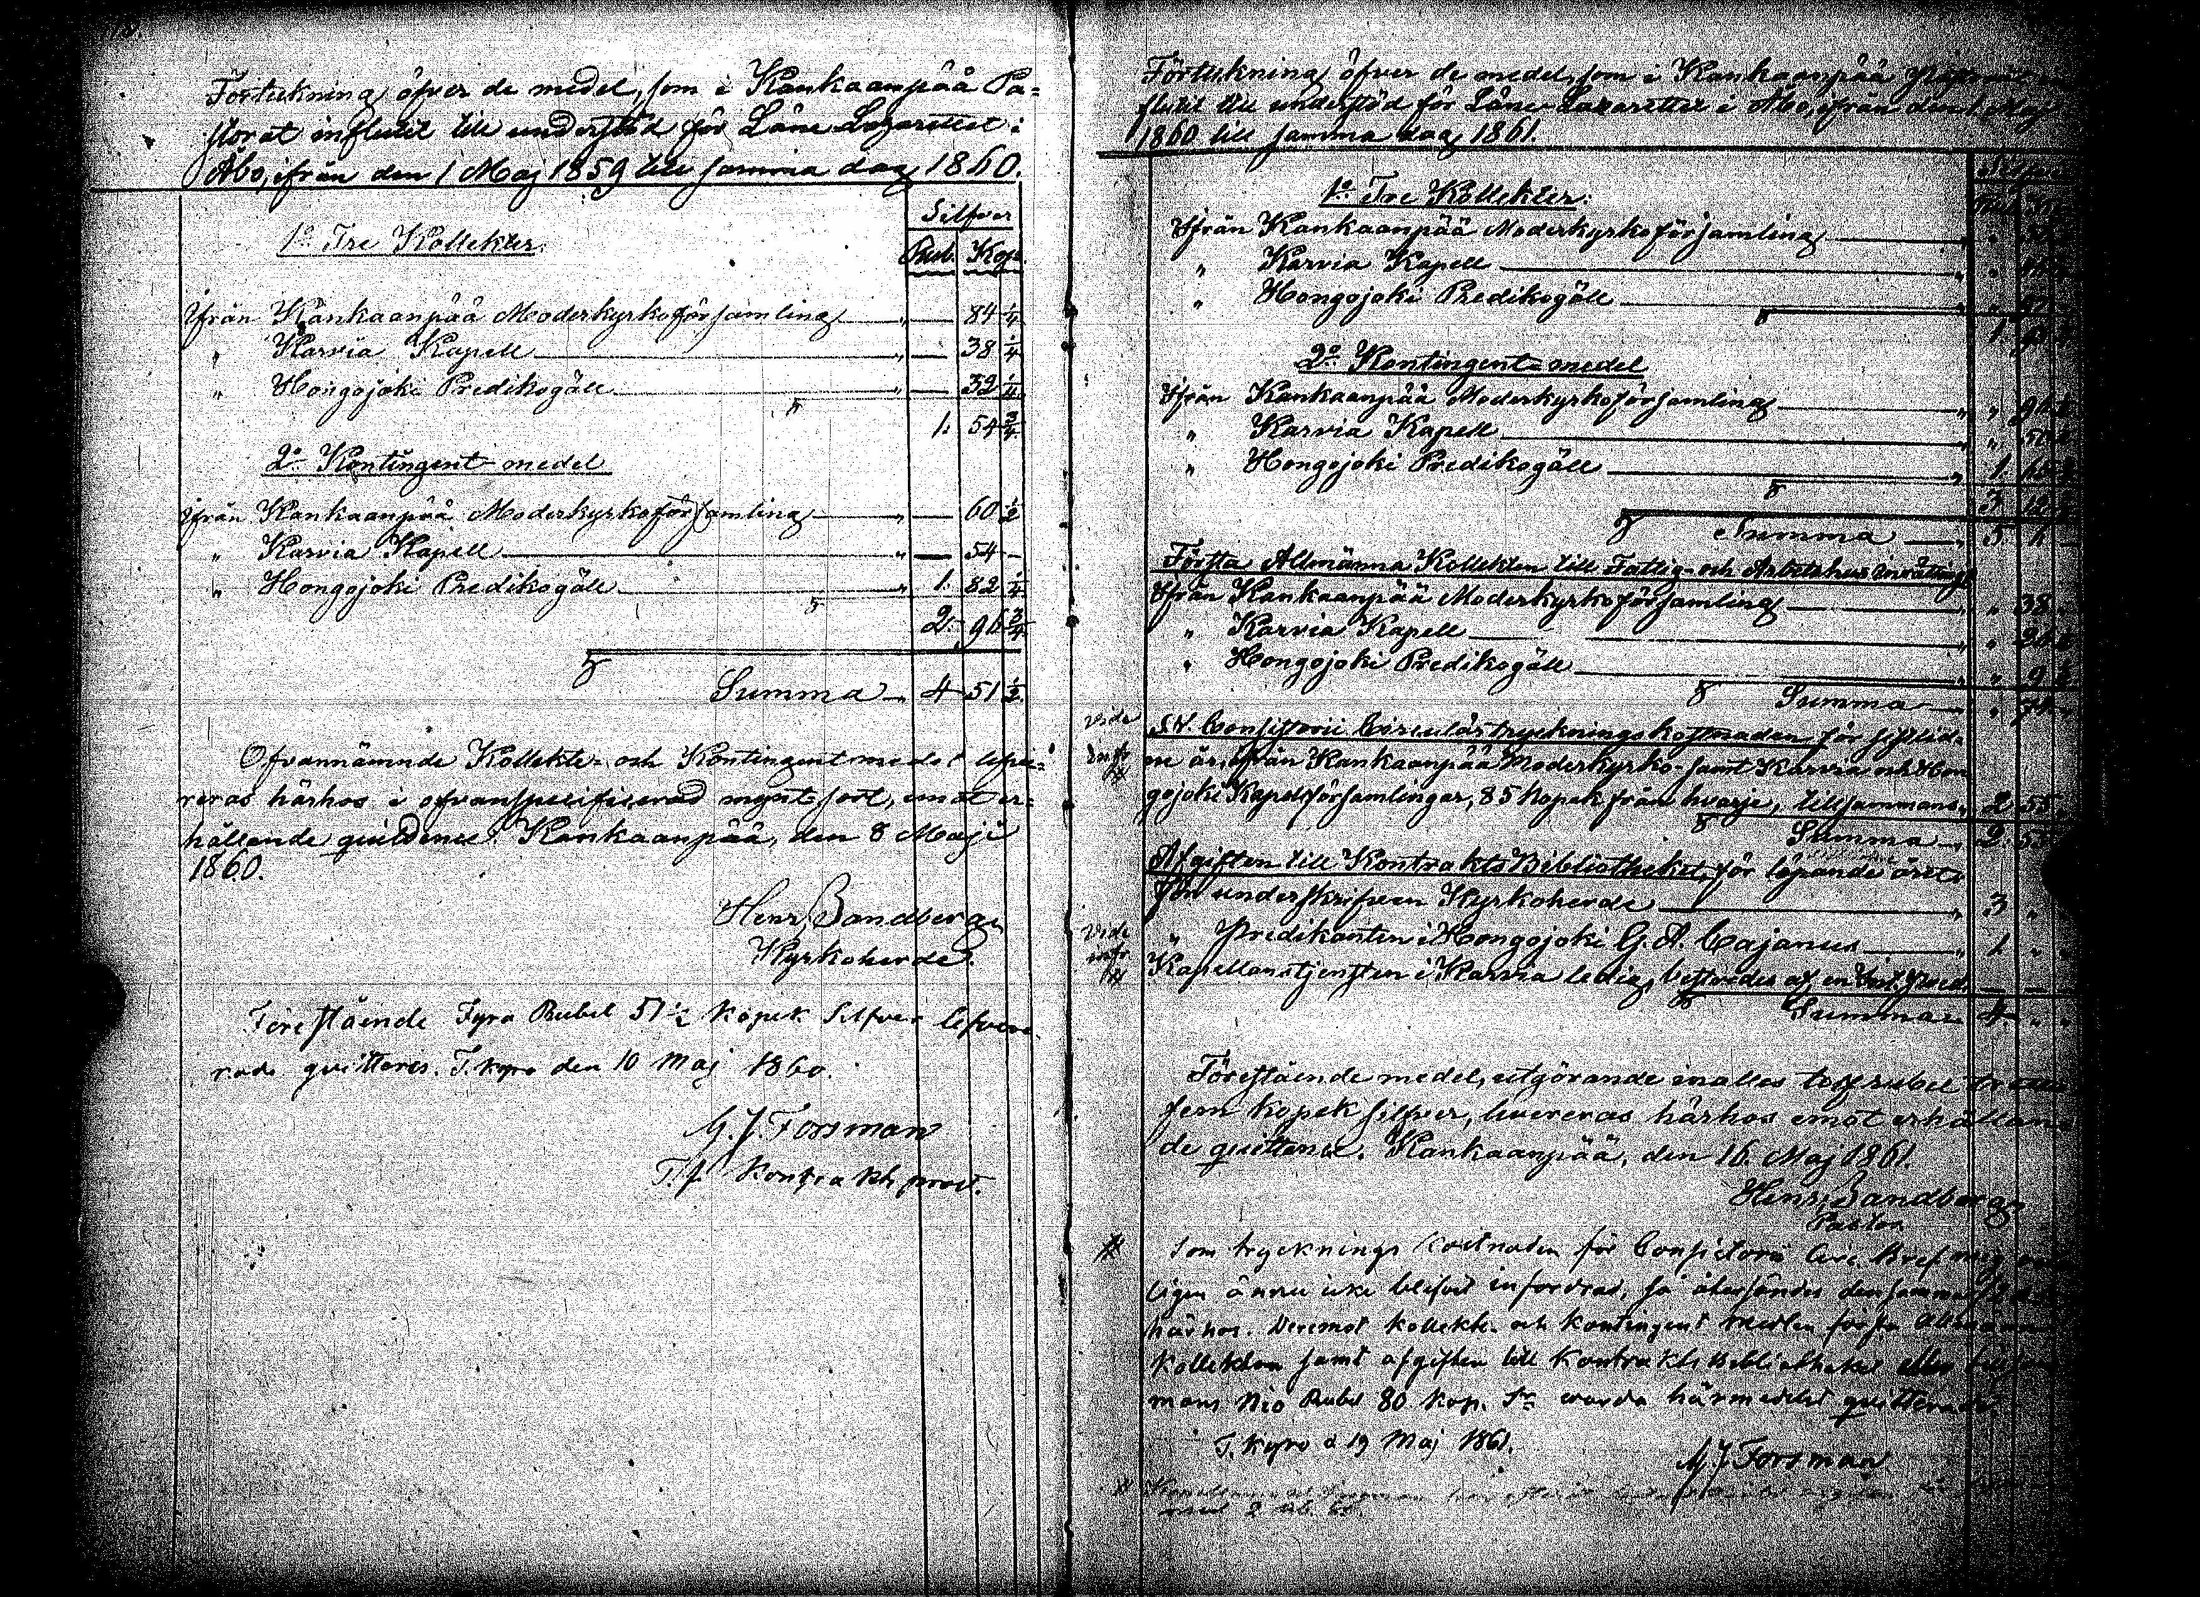 Förtekning öfver de medel, som i Kankaanpää Pa=
storat influtit till understöd för Läns Lazarettet i
Åbo, ifrån den 1 Maj 1859 till samma dag 1860.
Silfver
Rub. Kop.
1o Tre Kollekter.
Ifrån Kankaanpää Moderkyrkoförsamling " — 84 1/4
" Karvia Kapell " — 38 1/4
" Hongojoki Predikogäll " — 32 1/4
1. 54 3/4
2o Kontingent-medel
Ifrån Kankaanpää Moderkyrkoförsamling " — 60 1/2
" Karvia Kapell " — 54 —
" Hongojoki Predikogäll " 1. 82 1/4
2. 96 3/4
Summa 4 51 1/2
Ofvannämnde Kollekt- och Kontingent medel lefve=
reras härhos i ofvanspecificerad myntsort, emot er=
hållande quittence. Kankaanpää, den 8 Maji
1860.
Henr. Sandberg
Kyrkoherde.
Föreslående Fyra Rubel 51 1/2 Kopek Silfver lefvere
rade quitteras. T. kyro den 10 Maj 1860.
G. J. Forsman
T. f. Kontrakts prost.
Förtekning öfver de medel, som i Kankaanpää
flutit till understöd för Läns-Lazarettet i Åbo, ifrån den 1 Maj
1860 till samma dag 1861.
1o Tre Kollekter.
Ifrån Kankaanpää Moderkyrkoförsamling
" Karvia Kapell
" Hongojoki Predikogäll
1.
2o Kontingent-medel
Ifrån Kankaanpää Moderkyrkoförsamling
" Karvia Kapell
" Hongojoki Predikogäll 1.
3 12
Summa 5
Första Allmänna Kollekten till Fattig- och Arbetshus inrättning
Ifrån Kankaanpää Moderkyrkoförsamling " 38
" Karvia Kapell
" Hongojoki Predikogäll " 9
Summa
Vide
Consistorii Circulärs tryckningskostnaden för sistlid=
ne år, ifrån Kankaanpää Moderkyrko- samt Karvia och Hon
gojoki Kapellförsamlingar, 85 kopek från hvarje, tillsammans 2 55
Summa 2. 55
Afgiften till Kontrakts Bibliotheket, för löpande året
Vide
Kyrkoherde 3 "
" Predikanten i Hongojoki G. A. Cajanus 1 "
Kapellanstjensten i Karvia ledig, bestredes af en
Summa 4. "
Föreslående medel, utgörande inalles tolf rubel
fem kopek silfver, levereras härhos emot erhållan
de quittence. Kankaanpää, den 16. Maj 1861.
Henr. Sandberg
Pastor.
Som trycknings kostnaden för Consistorii Circ. Bref
ligen ännu icke blifvit infordrad, så återsändes densamma
härhos. Deremot kollekt- och kontingent medlen första Allmänna
Kollekten samt afgiften till Kontrakts Bibliotheket
mans Nio Rubel 80 kop. Sr warda härmedelst quitterade.
T. kyro d 19 Maj 1861.
G. J. Forsman